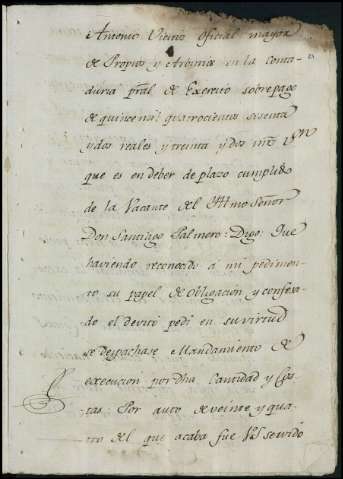 Antonio Oficial mayor
de Propios y Arbitrios en la Conta
duria pral de Exercito sobre pago
de quince mil quatrocientos sesenta
y dos reales y treinta y dos mrs vn
que es en deber de plazo cumplido
de la Vacante del Yltmo Señor
Don Santiago Palmero: Digo: Que
haviendo reconocido á mi pedimen
to su papel de obligacion y confesa
do el devito pedi en su virtud
se despachase Mandamiento de
execucion por dha Cantidad y Cos
tas: Por auto de veinte y qua
tro del que acaba fue Vd servido